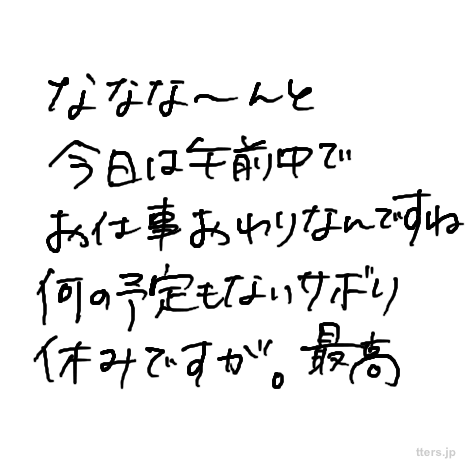 なななな〜んと
今日は午前中で
お仕事おわりなんですね
何の予定もないサボり
休みですが。最高
tters.jp